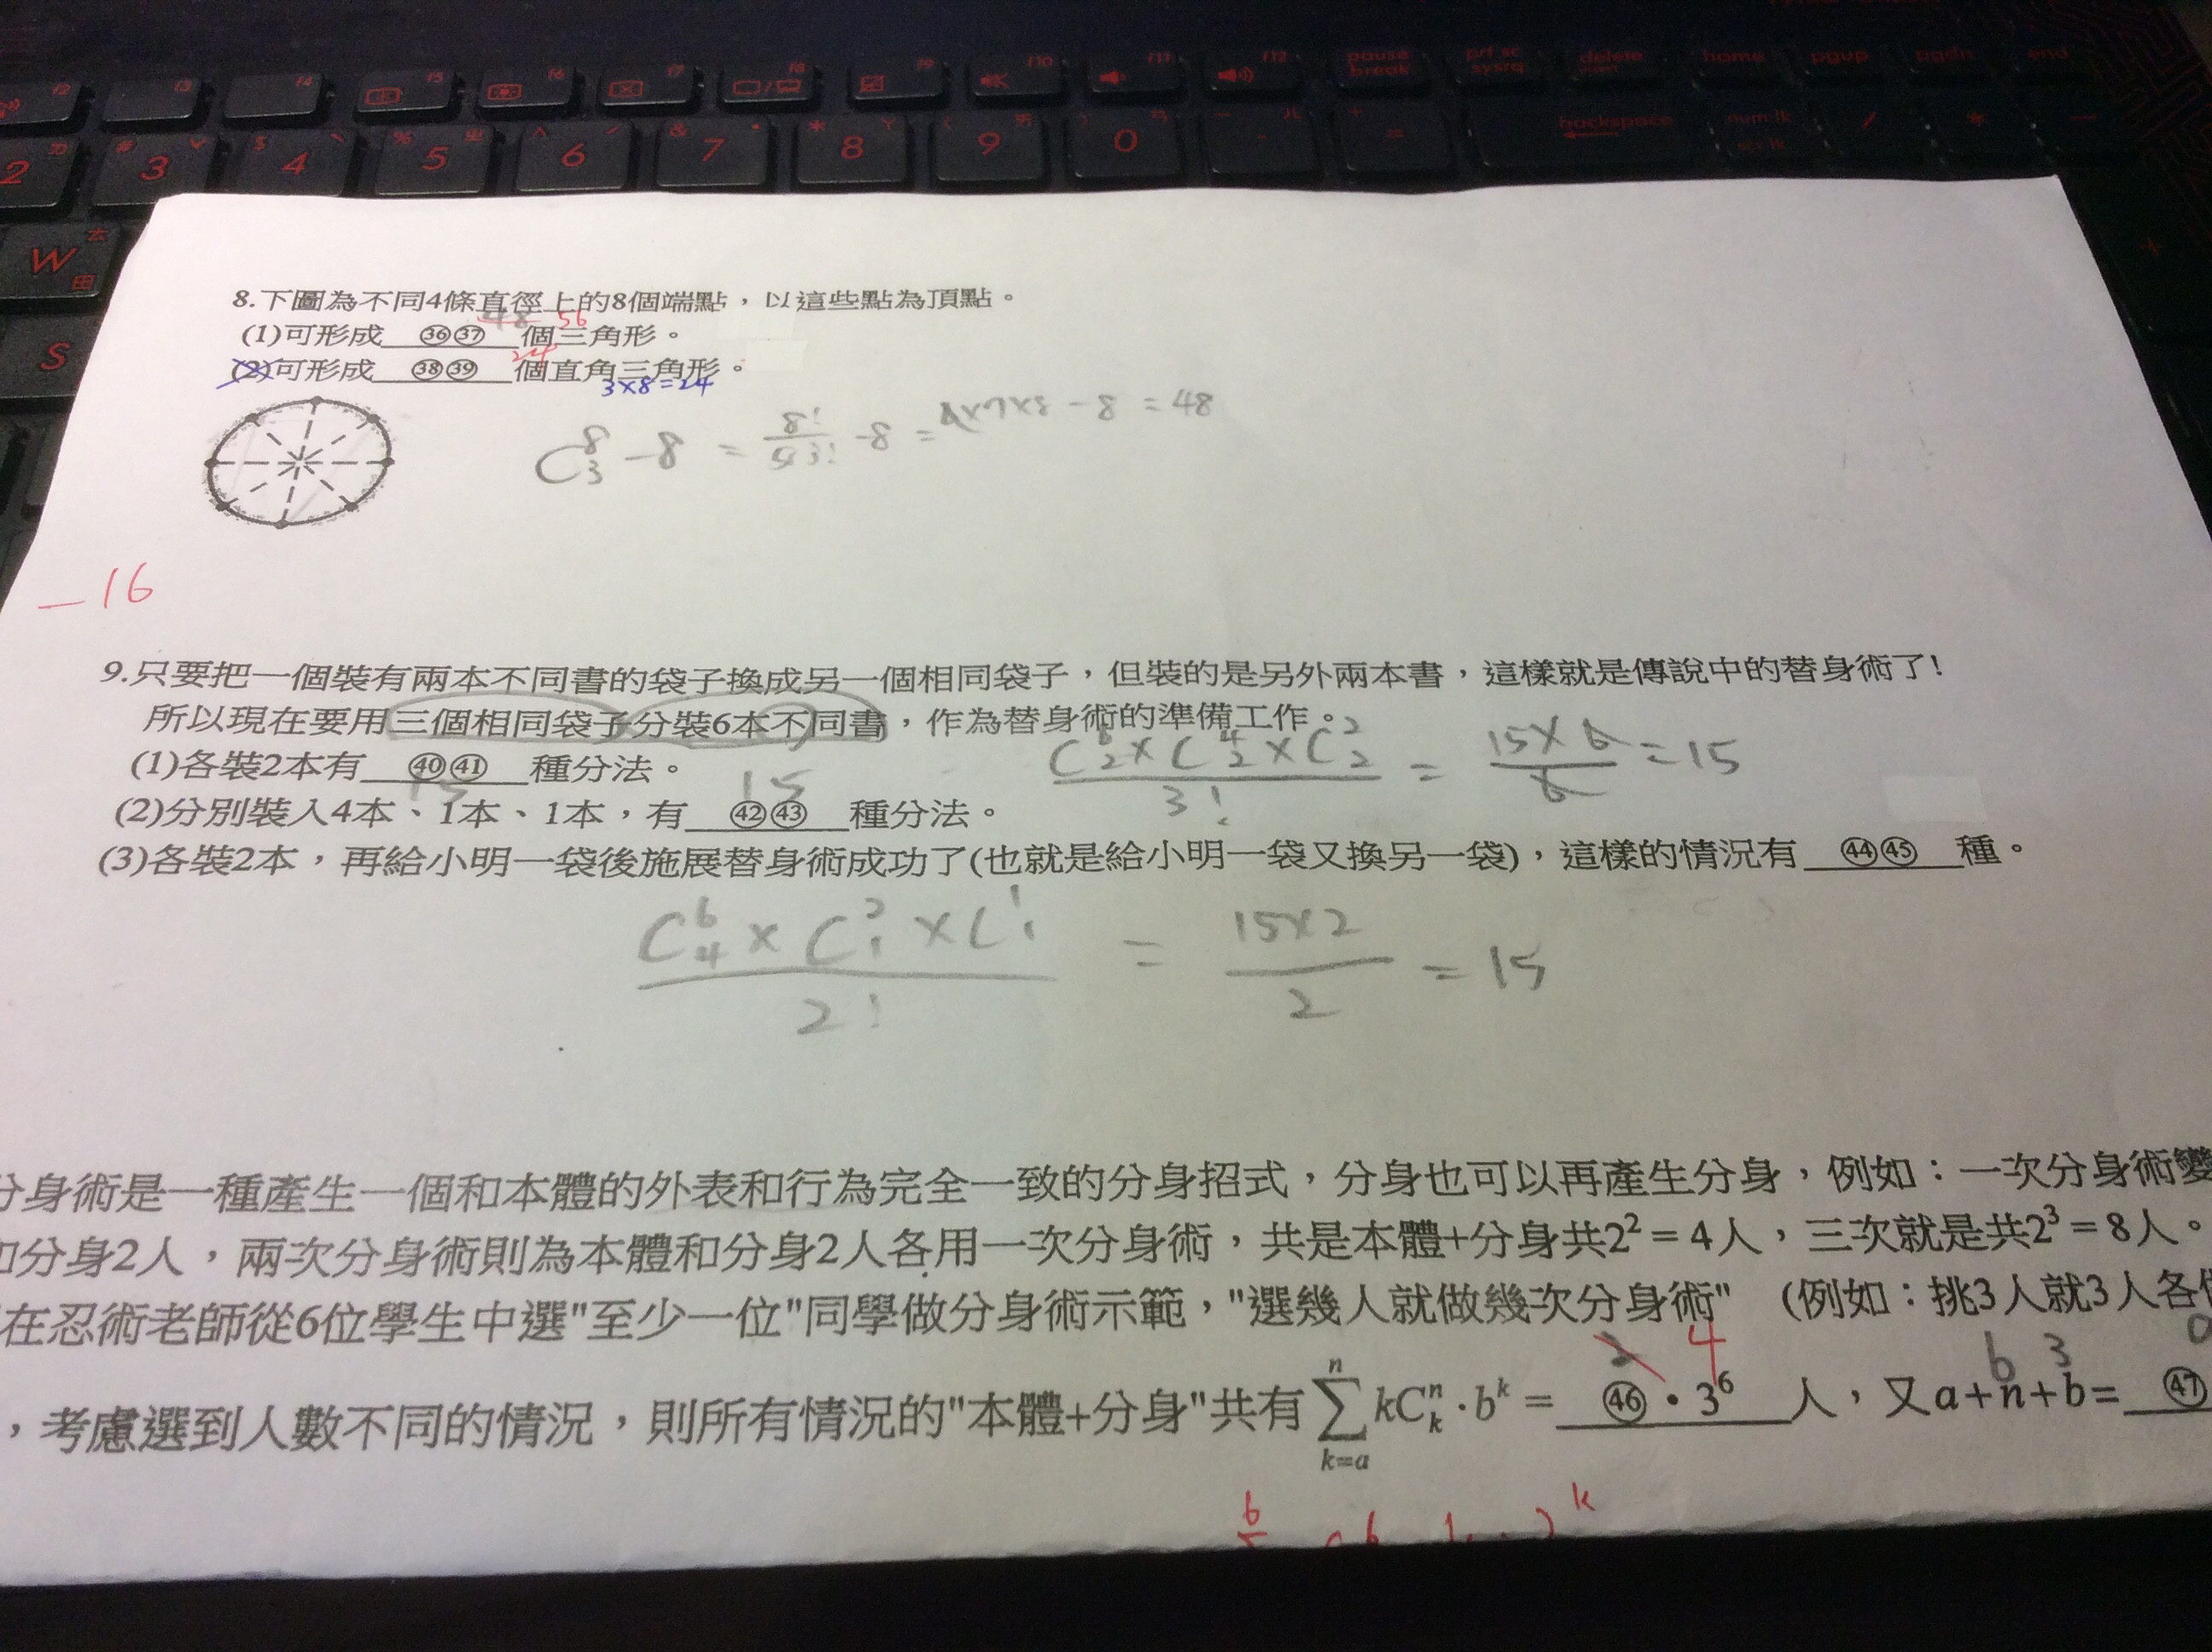 f2 f3 f4 f5 f6 f7 f8 f9 f10 f11 f12 pause break prt sc sysrq delete home pgup pgdn end
2 # 3 $ 4 % 5 ^ 6 & 7 * 8 9 0 - + = backspace num lk scr lk / * -
W
S
8.下圖為不同4條直徑上的8個端點，以這些點為頂點。
48 56
(1)可形成 ㊱㊲ 個三角形。
24
(2)可形成 ㊳㊴ 個直角三角形。
3×8=24
C⁸₃ -8 = 8!/5!3! -8 = ×7×8 -8 = 48
-16
9.只要把一個裝有兩本不同書的袋子換成另一個相同袋子，但裝的是另外兩本書，這樣就是傳說中的替身術了!
所以現在要用三個相同袋子分裝6本不同書，作為替身術的準備工作。
(1)各裝2本有 ㊵㊶ 種分法。
15 15
C⁶₂×C⁴₂×C²₂ / 3! = 15×6/6 = 15
(2)分別裝入4本、1本、1本，有 ㊷㊸ 種分法。
(3)各裝2本，再給小明一袋後施展替身術成功了(也就是給小明一袋又換另一袋)，這樣的情況有 ㊹㊺ 種。
C⁶₄×C²₁×C¹₁ / 2! = 15×2/2 = 15
分身術是一種產生一個和本體的外表和行為完全一致的分身招式，分身也可以再產生分身，例如：一次分身術變
和分身2人，兩次分身術則為本體和分身2人各用一次分身術，共是本體+分身共2²=4人，三次就是共2³=8人。
在忍術老師從6位學生中選"至少一位"同學做分身術示範，"選幾人就做幾次分身術" (例如：挑3人就3人各
2 4 6 3
，考慮選到人數不同的情況，則所有情況的"本體+分身"共有 n∑k=a kCⁿₖ·bᵏ= ㊻·3⁶ 人，又a+n+b= ㊼
6 k